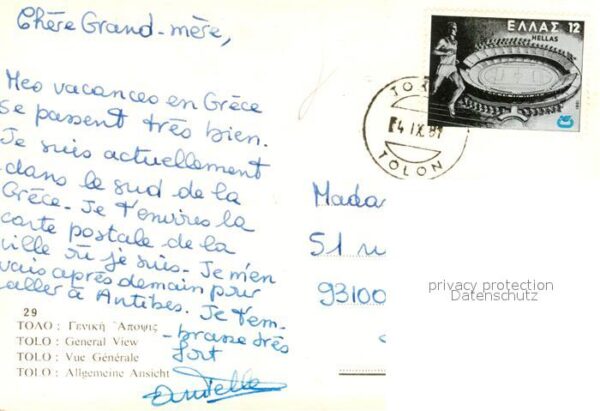 Chère Grand-mère,
Mes vacances en Grèce
se passent très bien.
Je suis actuellement
dans le sud de la
Grèce. Je t'envires la
carte postale de la
ville où je suis. Je m'en
vais après demain pour
aller à Antibes. Je t'em-
-brasse très
fort
29
ΤΟΛΟ : Γενική Ἄποψις
TOLO : General View
TOLO : Vue Générale
TOLO : Allgemeine Ansicht
ΕΛΛΑΣ 12
HELLAS
4 IX 81
TOLON
Mada
51
93100
privacy protection
Datenschutz